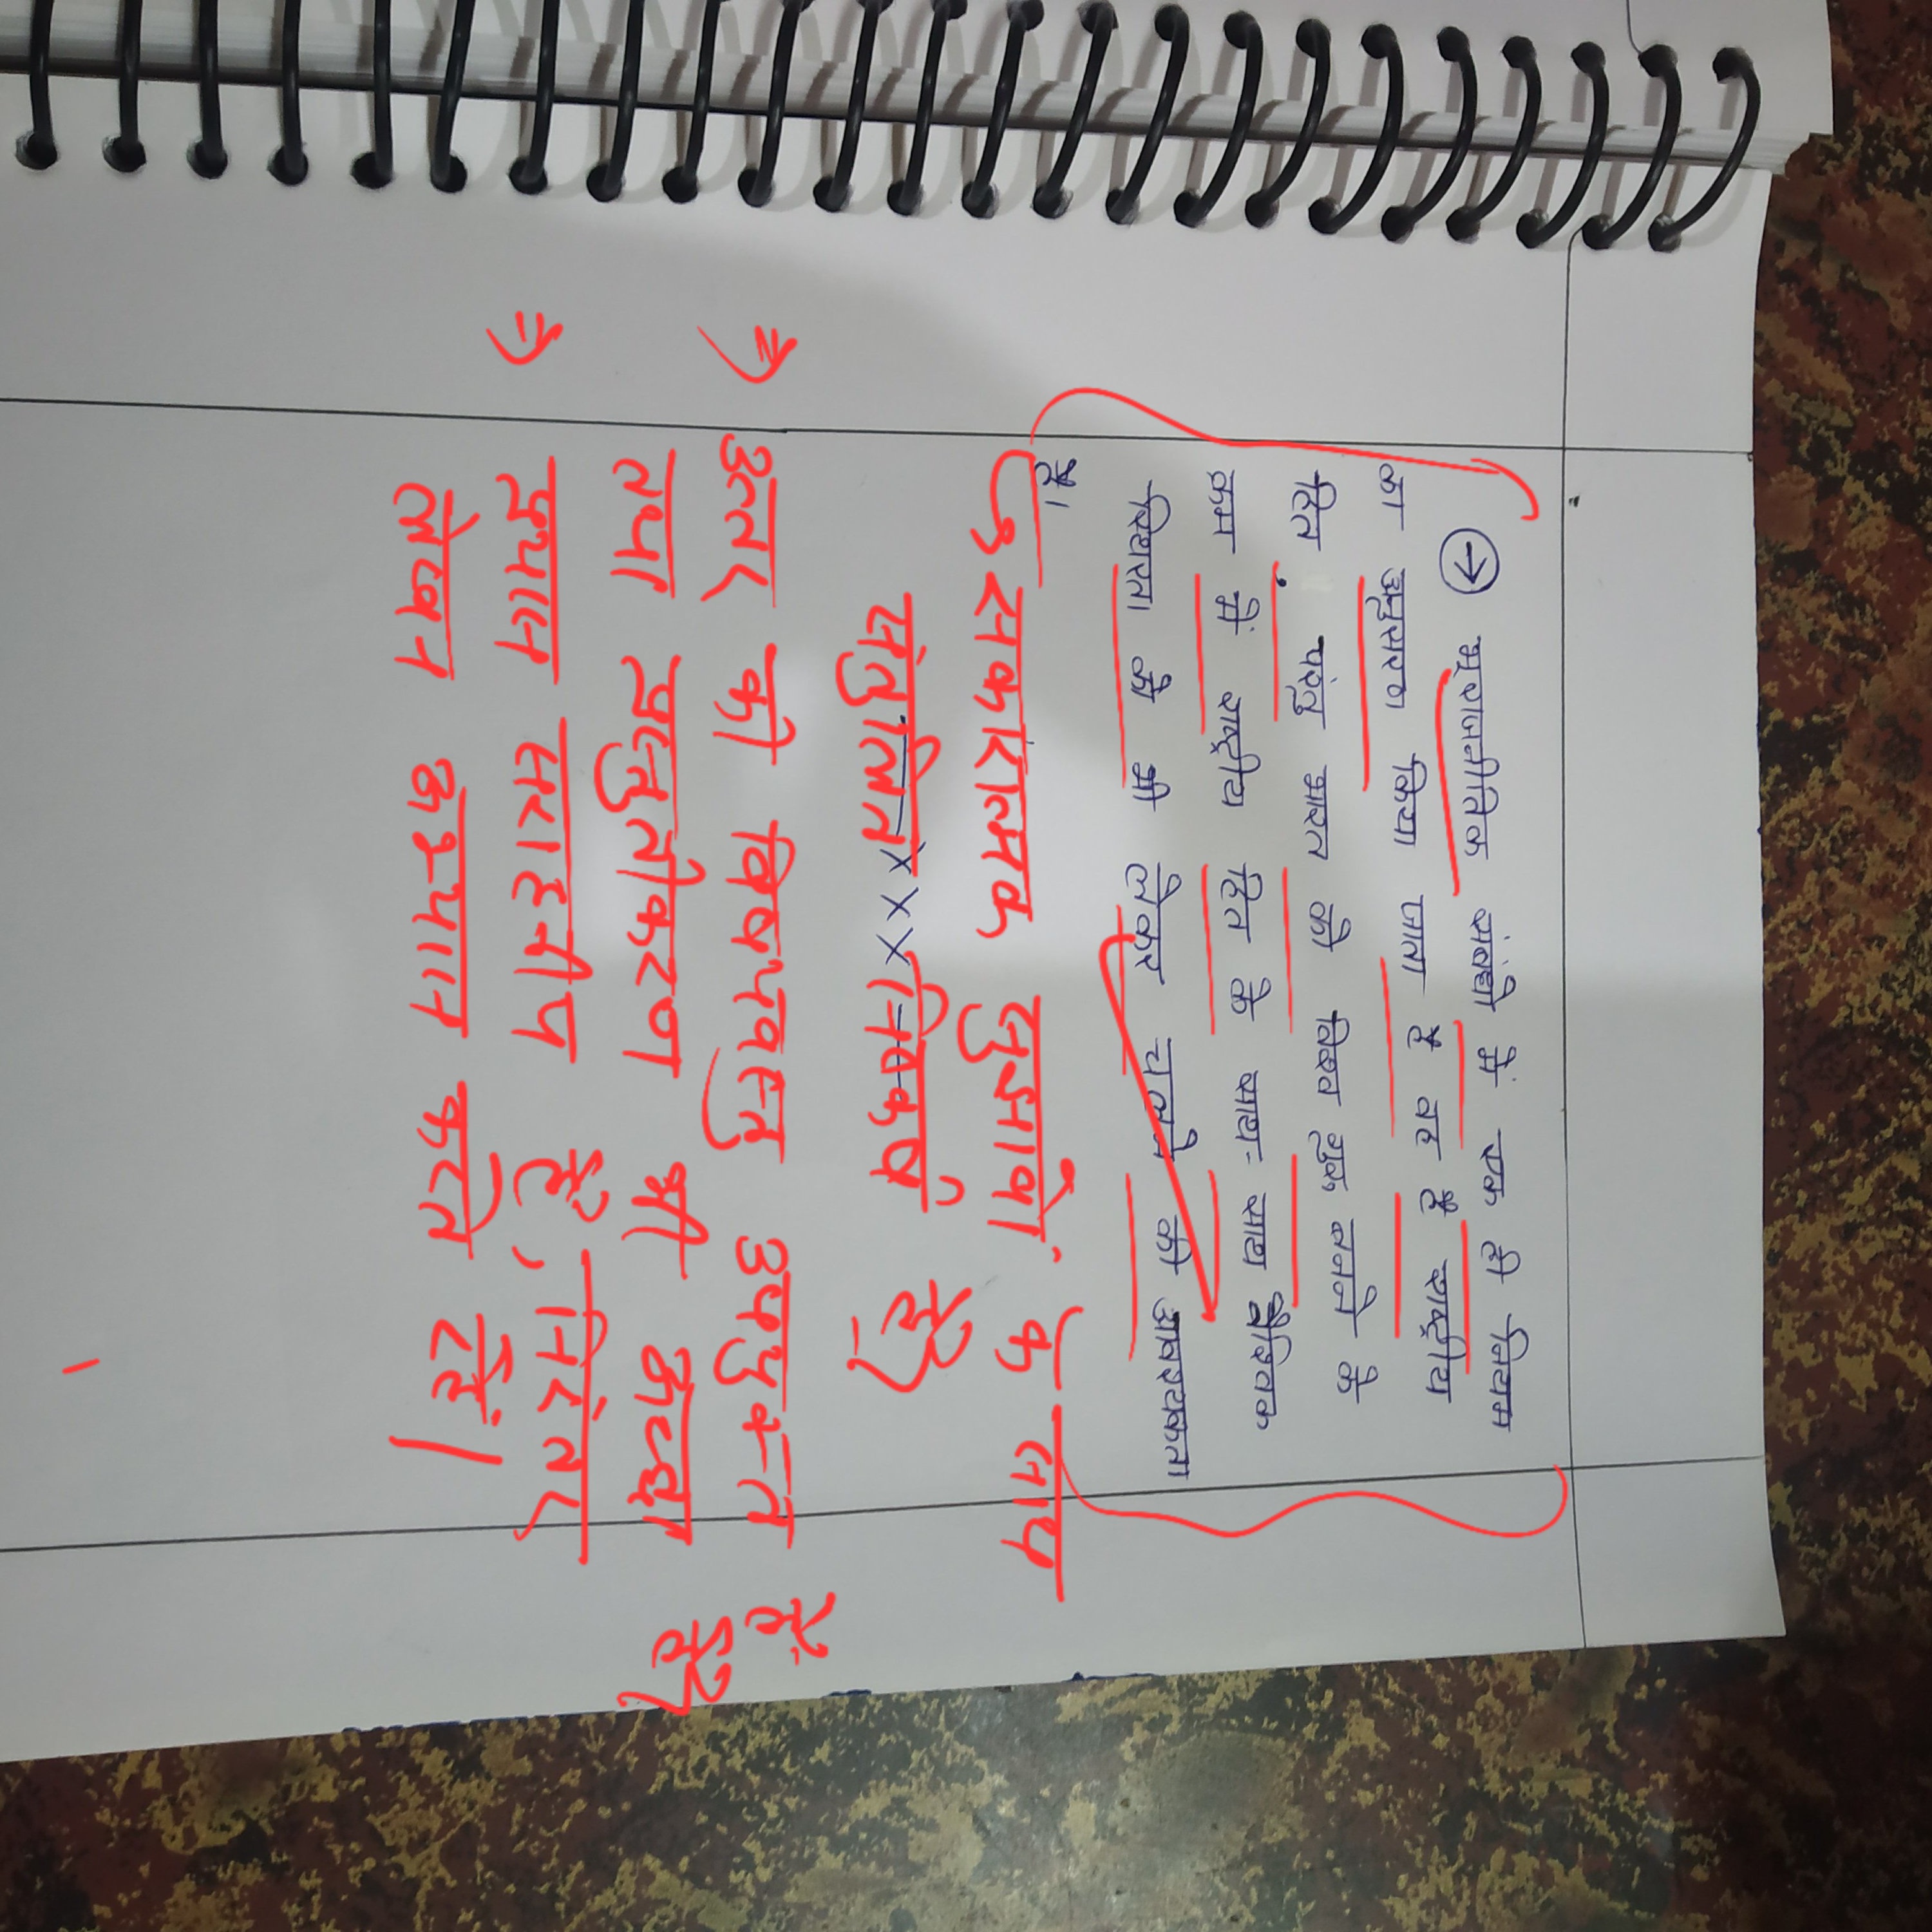 → भूराजनीतिक संबंधो में एक ही नियम
का अनुसरण किया जाता है वह है राष्ट्रीय
हित परंतु भारत को विश्व गुरू बनने के
क्रम में राष्ट्रीय हित के साथ-साथ वैश्विक
स्थिरता को भी लेकर चलने की आवश्यकता
है।
सकारात्मक सुझावों के साथ
संतुलित xxx निष्कर्ष है।
⇒ उत्तर की विषयवस्तु उपयुक्त है
तथा प्रस्तुतीकरण भी अच्छा है।
⇒ प्रयास सराहनीय है, निरंतर
लेखन अभ्यास करते रहें।